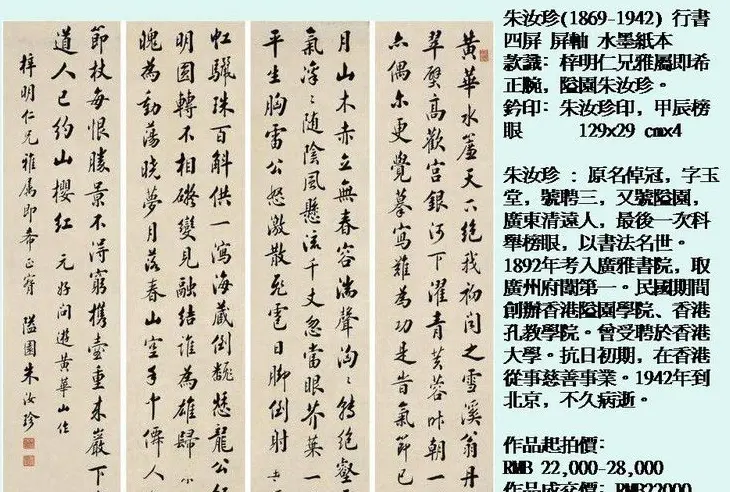 黃華水簾天下絕我初聞之雪溪翁丹
翠壁高歡宮銀河下濯青芙蓉昨朝一
亦偶尔更覺摹寫難為功是旹氣節已
月山木赤立無春容湍聲洶〻轉絕壑
氣凜〻隨陰風懸流千丈忽當眼芥葉一
平生胸雷公怒激散飛雹日腳倒射
虹驪珠百斛供一瀉海藏倒翻愁龍公
明圓轉不相礙變見融結誰為雄歸
魄為動蕩曉夢月落春山空手中僊人
節杖每恨勝景不得窮攜壺重來巖下
道人已約山櫻紅 元好問遊黃華山作
梓明仁兄雅屬即希正腕 隘園朱汝珍
朱汝珍(1869-1942) 行書
四屏 屏軸 水墨紙本
款識: 梓明仁兄雅屬即希
正腕,隘園朱汝珍。
鈐印: 朱汝珍印,甲辰榜
眼 129x29 cmx4
朱汝珍 : 原名倬冠,字玉
堂,號聘三,又號隘園,
廣東清遠人,最後一次科
舉榜眼,以書法名世。
1892年考入廣雅書院,取
廣州府圍第一。民國期間
創辦香港隘園學院、香港
孔教學院。曾受聘於香港
大學。抗日初期,在香港
從事慈善事業。1942年到
北京,不久病逝。
作品起拍價:
RMB 22,000-28,000
作品成交價: RMB22000